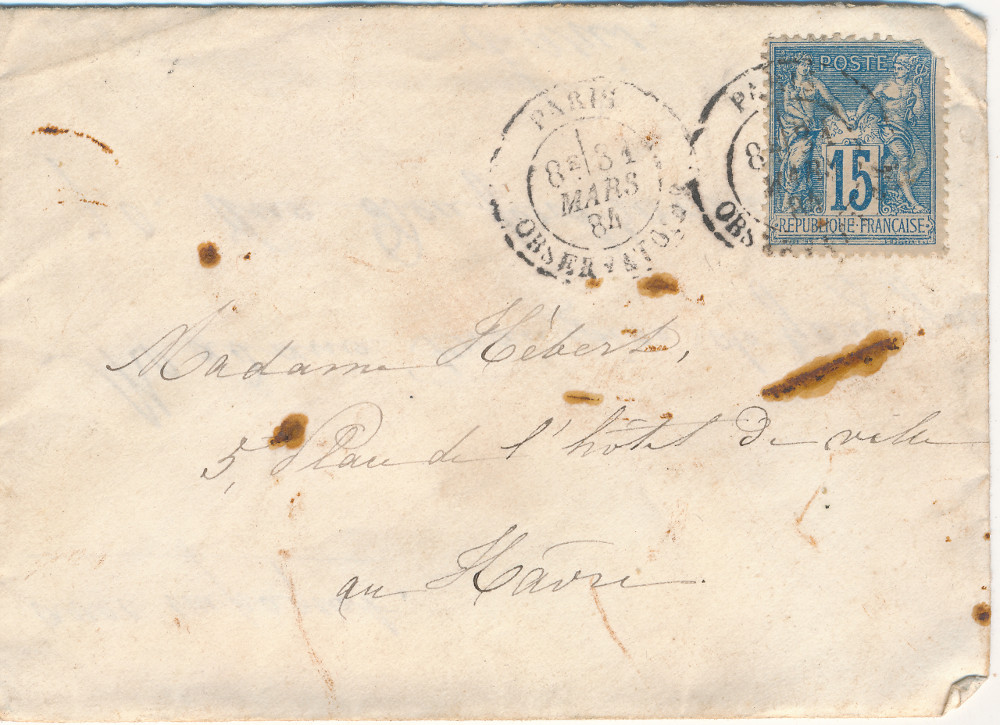 PARIS
8E 31
MARS
84
OBSERVATOIRE
POSTE
15
REPUBLIQUE FRANÇAISE
Madame Hébert,
5, Place de l'hôtel de ville
au Hâvre.